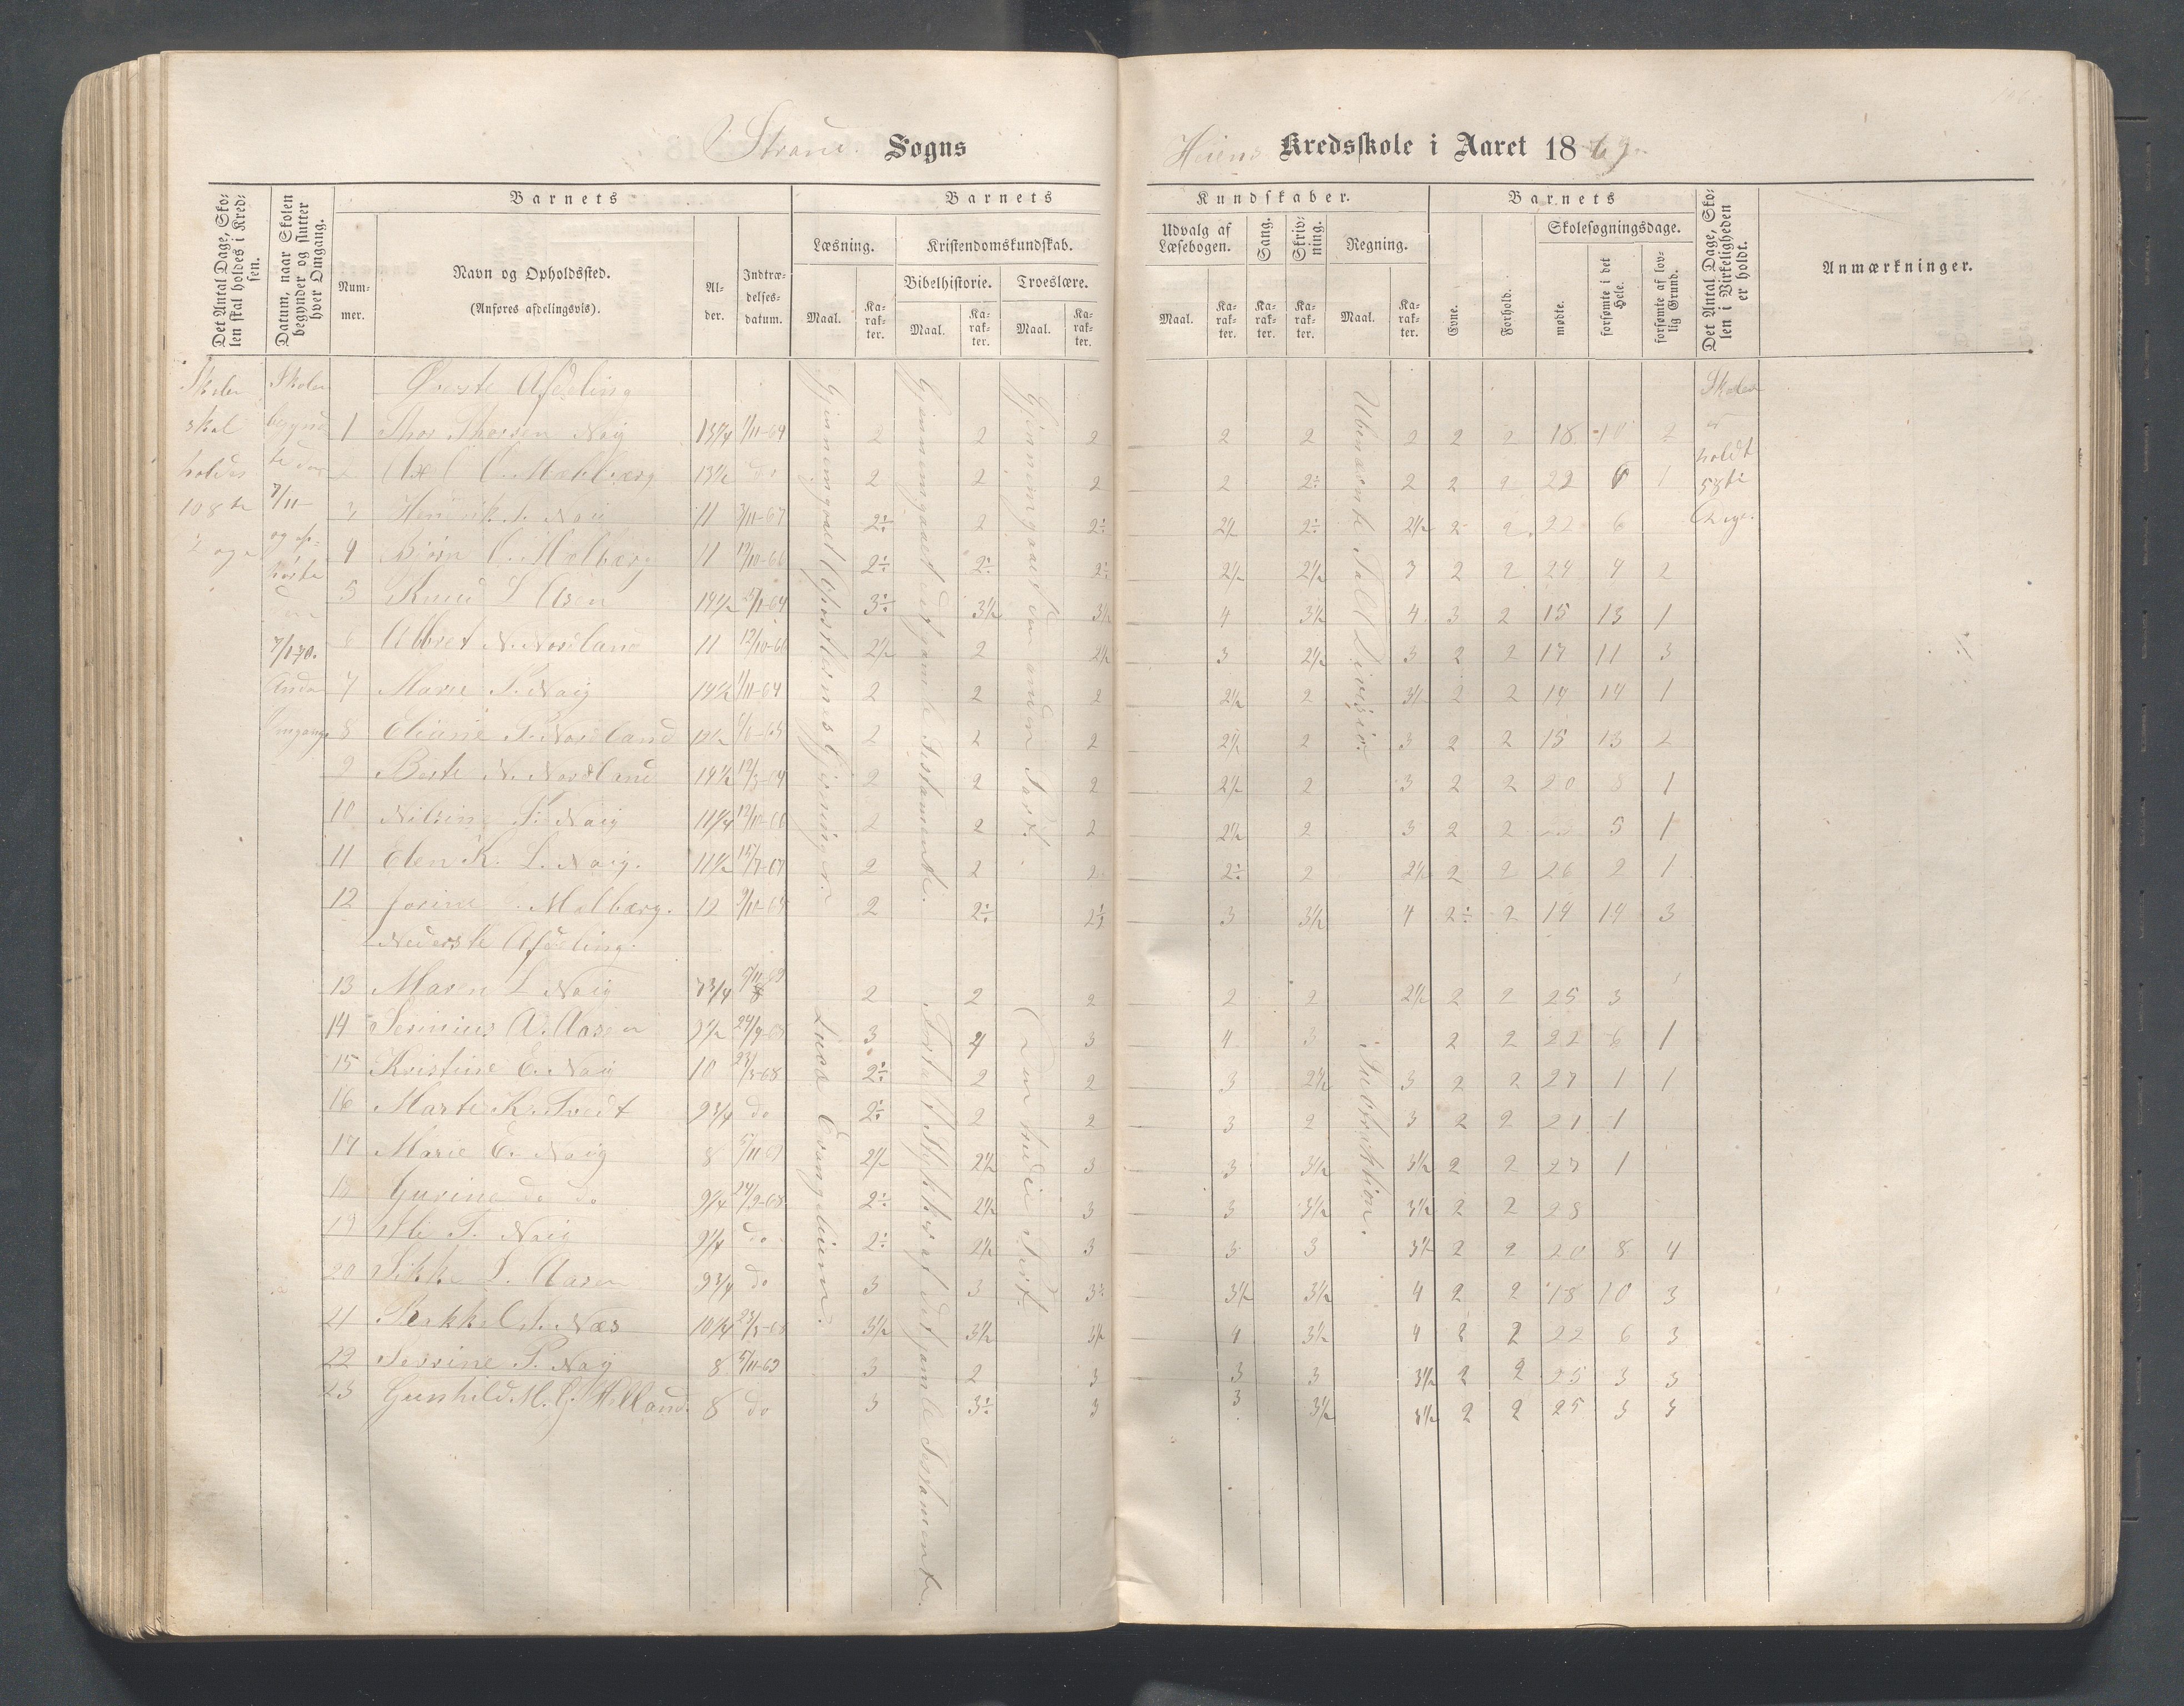 Strand Sogns
Heiens Kredsskole i Aaret 1869
Det Antal Dage, Skolen skal holdes i Kredsen.
Datum, naar Skolen begynder og slutter hver Omgang.
Barnets
Nummer.
Navn og Opholdssted.
(Anføres afdelingsvis).
Alder.
Indtrædelsesdatum.
Barnets
Læsning.
Maal.
Karakter.
Kristendomskundskab.
Bibelhistorie.
Maal.
Karakter.
Troeslære.
Maal.
Karakter.
Kundskaber.
Udvalg af Læsebogen.
Maal.
Karakter.
Sang.
Karakter.
Skrivning.
Karakter.
Regning.
Maal.
Karakter.
Barnets
Evne.
Forhold.
Skolesøgningsdage.
mødte.
forsømte i det Hele.
forsømte af lovlig Grund.
Det Antal Dage, Skolen i Virkeligheden er holdt.
Anmærkninger.
Skolen skal holdes 108 te Dage
Skolen begyndte den 7/11 og ophørte den 7/1-70. Anden Omgang
Skolen er holdt 58 te Dage.
Øverste Afdeling
1 Thor Thorsen Naig 13 3/4 1/11-64 2 2 2 2 2 2 2 2 18 10 2
2 13 1/2 do 2 2 2 2 2÷ 2 2 2 22 6 1
3 Henrik Naig 11 7/11-67 2÷ 2 2÷ 2 1/2 2÷ 2 1/2 2 2 22 6
4 Bjørn Molberg 11 12/10-66 2÷ 2÷ 2÷ 2 1/2 2 1/2 3 2 2 24 4 2
5 Knud L. Aasen 14 1/2 3÷ 3 1/2 3 1/2 4 3 1/2 4 3 2 15 13 1
6 N. Nordland 11 12/10-66 2 1/2 2 2 1/2 3 2 1/2 3 2 2 17 11 3
7 Marie T. Naig 14 1/2 1/11-64 2 2 2 2 1/2 2 3 1/2 2 2 14 14 1
8 Eliane T. Nordland 2 2 2 2 1/2 2 3 2 2 15 13 2
9 Berte N. Nordland 14 1/2 2 2 2 2 1/2 2 3 2 2 20 8 1
10 Nilsine T. Naig 11 1/4 12/10-66 2 2 2 2 1/2 2 3 2 2 5 1
11 Elen K. L. Naig. 11 1/2 15/7-67 2 2 2 2÷ 2 2 1/2 2 2 26 2 1
12 Jorine Molberg. 12 9/10-65 2 2÷ 2÷ 3 3 1/2 4 2÷ 2 14 14 3
Nederste Afdeling.
13 Maren L. Naig 7 3/4 2 2 2 2 2 2 1/2 2 2 25 3
14 Serinius A. Aasen 9 1/2 24/9-68 3 2 3 4 3 2 2 22 6 1
15 Kristine E. Naig 10 23/3-68 2÷ 2 2 3 2 1/2 3 2 2 27 1 1
16 Marte K. Tvedt 9 3/4 do 2÷ 2 2 3 2 3 2 2 21 1
17 Marie E. Naig 8 5/11-69 2 1/2 2 1/2 3 3 3 1/2 3 1/2 2 2 27 1
18 Gurine do do 9 1/4 24/9-68 2÷ 2 1/2 3 3 3 1/2 3 1/2 2 2 28
19 T. Naig 9 1/4 do 2÷ 2 1/2 3 3 3 3 1/2 2 2 20 8 4
20 Sikke L. Aasen 9 3/4 do 3 3 3÷ 3 1/2 3 1/2 4 2 2 18 10 3
21 Næs 10 1/4 23/3-68 3 1/2 3 1/2 3 1/2 4 3 1/2 4 2 2 22 6 3
22 Serine T. Naig 8 5/11-69 3 2 3 3 3 3 1/2 2 2 25 3 3
23 Gunhild M. G. Helland. 8 do 3 3÷ 3 3 3 1/2 3 1/2 2 2 25 3 3
Gjennemgaaet Apostlernes Gjerninger.
Gjennemgaaet det gamle Testamente.
Gjennemgaaet den anden Part.
Ubenævnte Tal Division.
Lucæ Evangelium.
Fortalt Stykker af det gamle Testamente.
Den tredie Part.
Subtraktion.